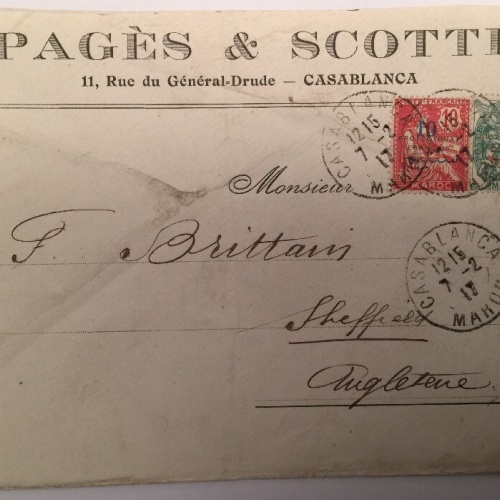 PAGÈS & SCOTTI
11, Rue du Général-Drude — CASABLANCA
CASABLANCA
12 15
7 -2
17
MAROC
10
MAROC
Monsieur
F. Brittain
CASABLANCA
12 15
7 -2
17
Sheffield
Angleterre